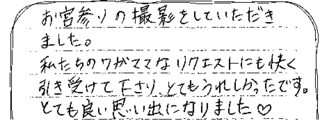 お宮参りの撮影をしていただき
ました。
私たちのワガママなリクエストにも快く
引き受けて下さり、とてもうれしかったです。
とても良い思い出になりました♡